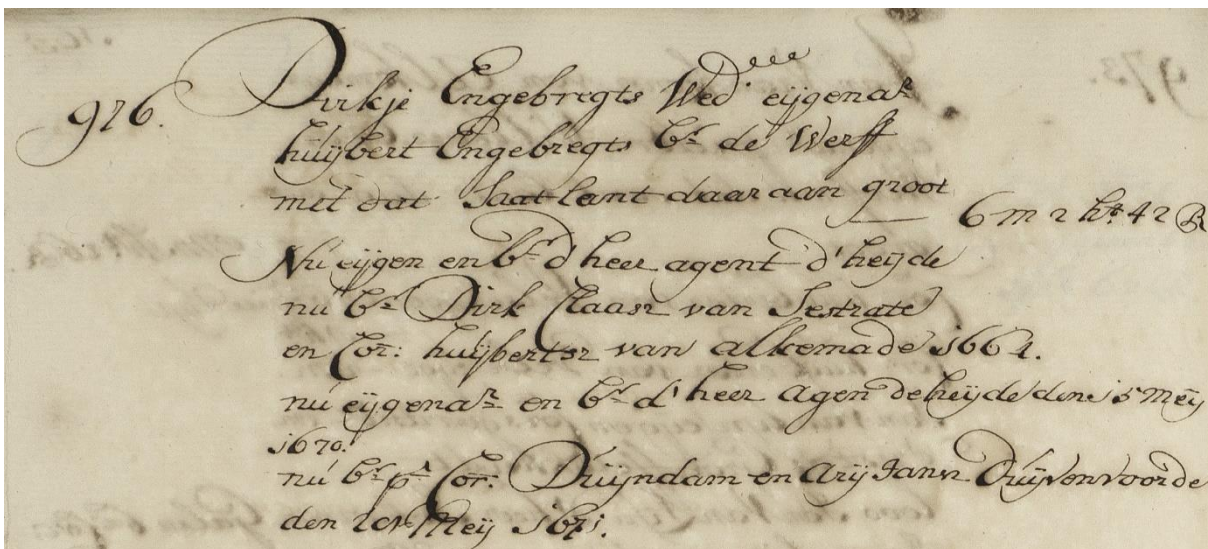 976. Dirkje Engebregts Wed eijgenar
huijbert Engebregts br de Werff
met dat Saat lant daar aan groot
6 m 2 ht 42 R
Nu eijgen en br d' heer agent d' heijde
nu br Dirk Claasz van Sestrate
en Cor: huijbertsz van alkemade 1664.
nu eijgenar en br d' heer agen de heijde den 15 Meij
1670.
nu br Cor: Duijndam en Arij Jansz Duijvenvoorde
den Meij 1671.